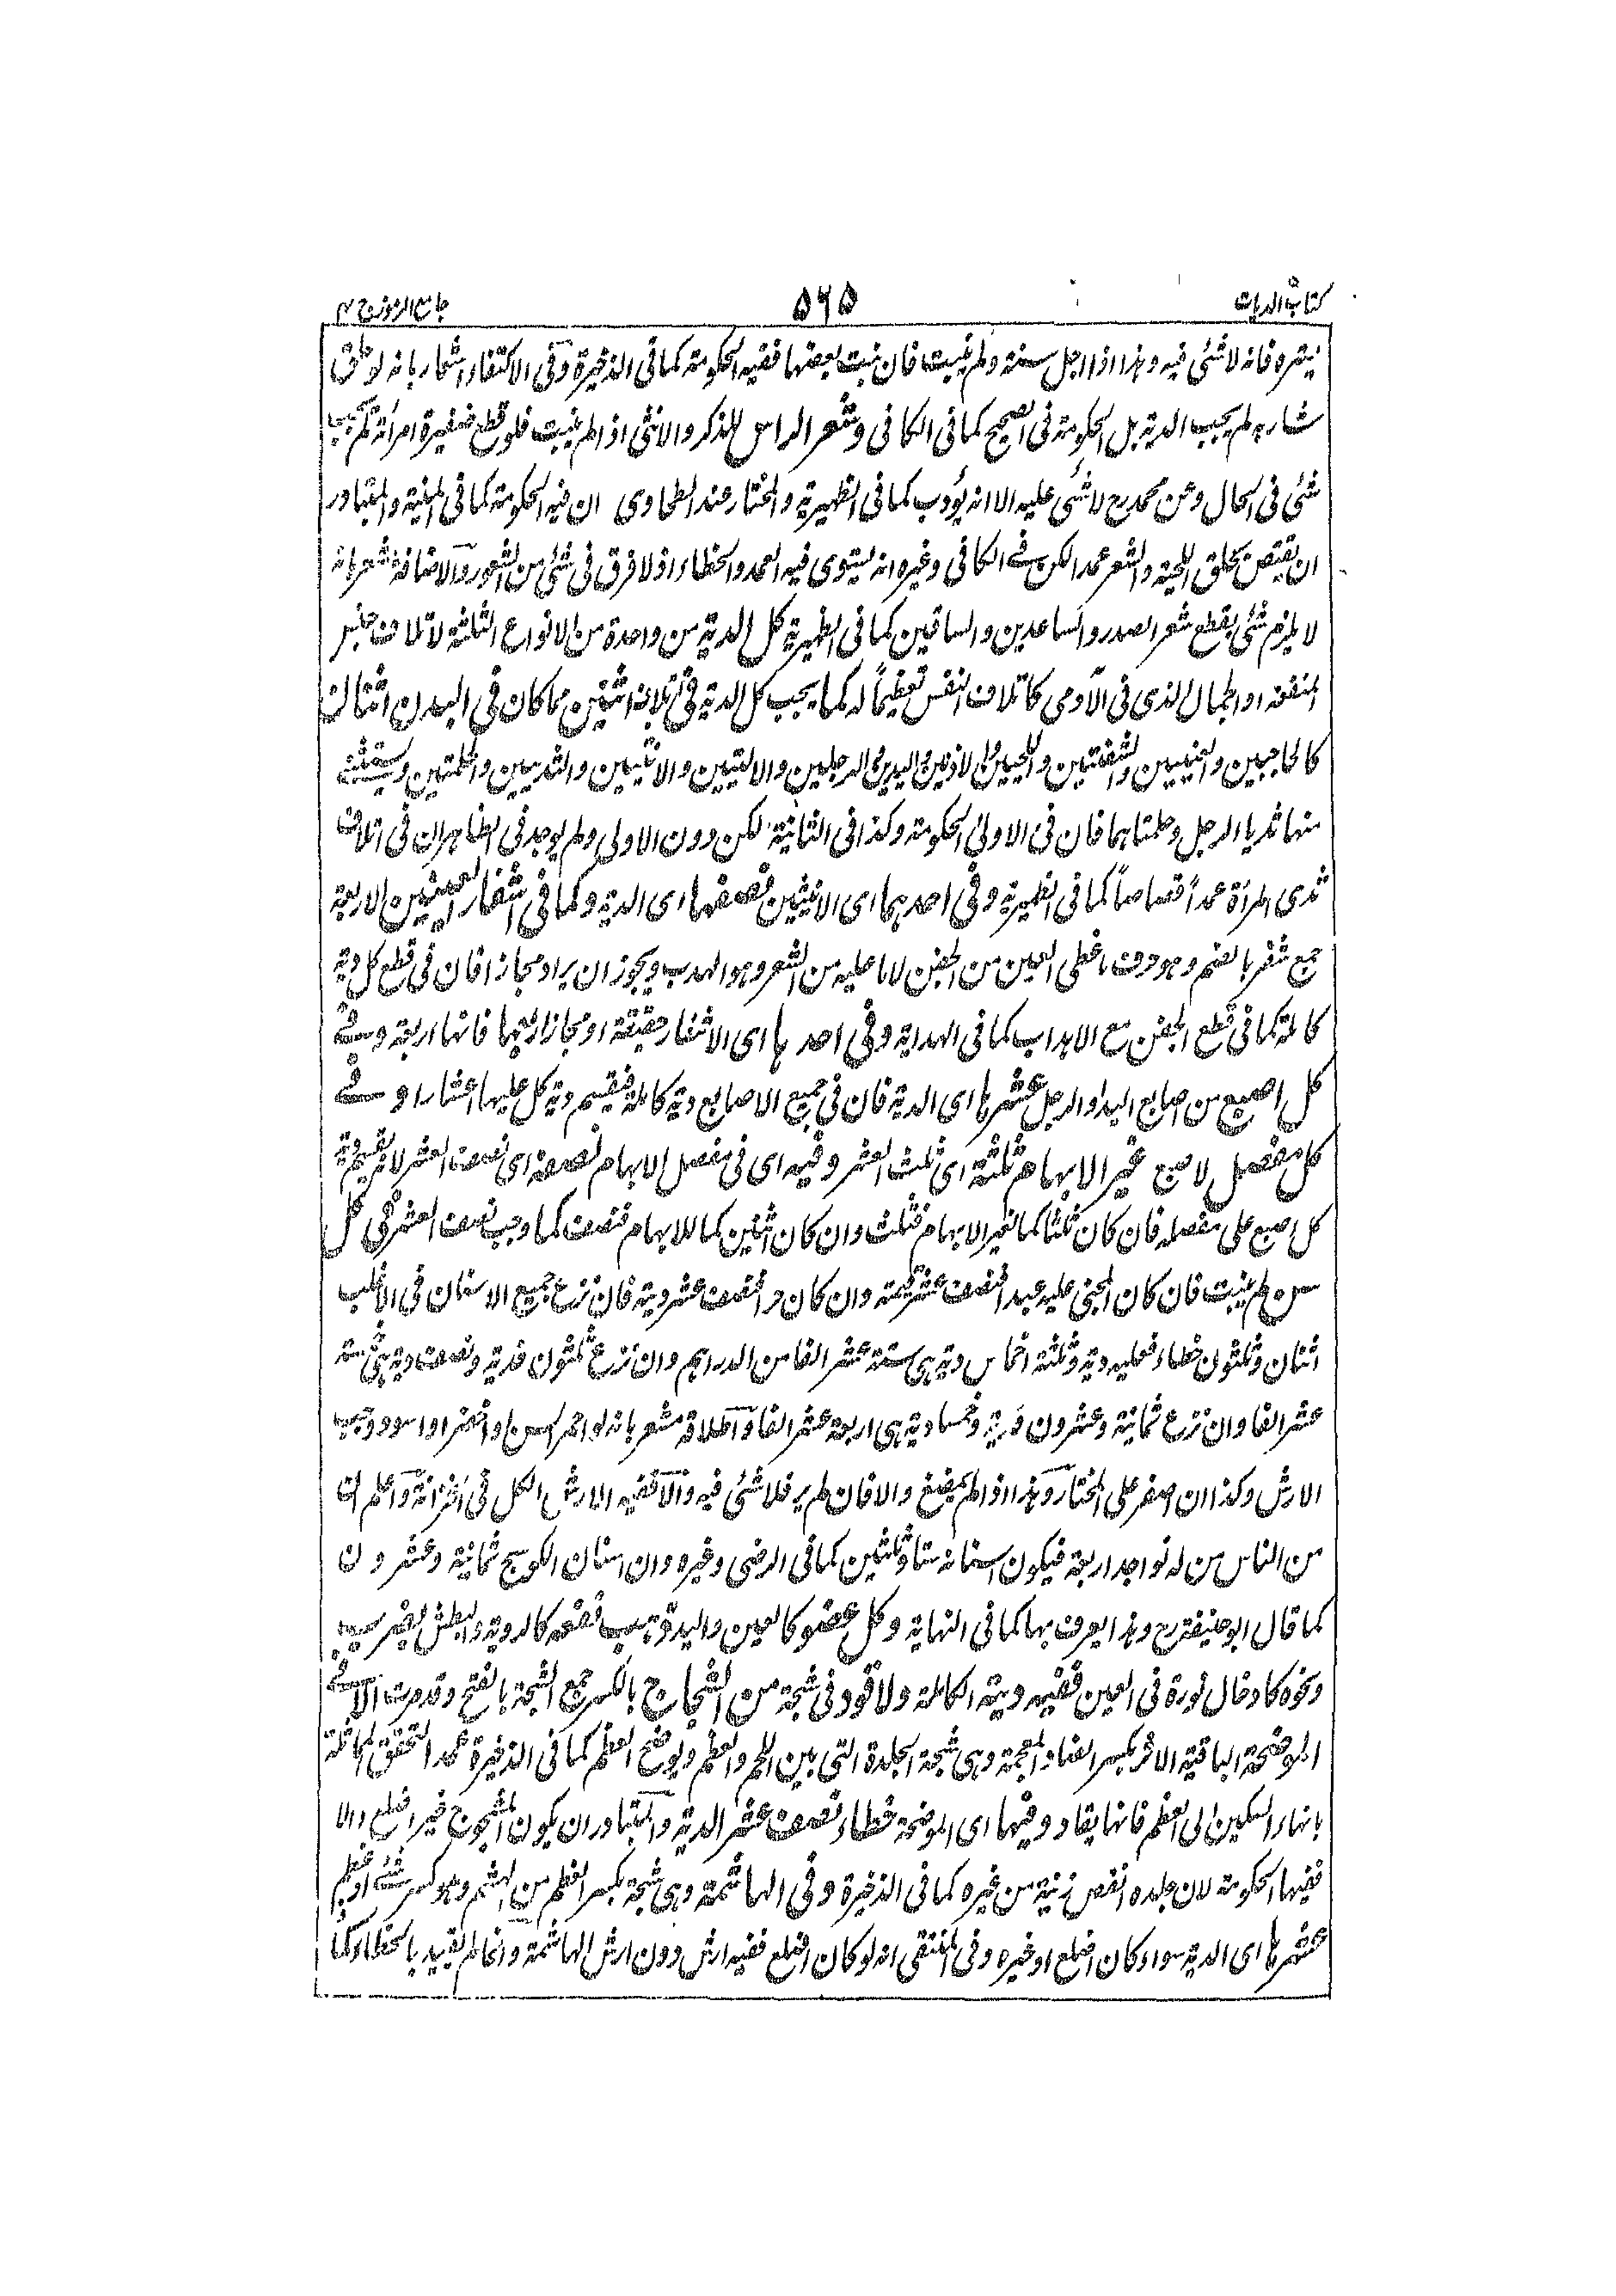 كتاب الديات
٥٦٥
جامع الرموز ج ٢
فانه لا شئ فيه وهذا اذا اجل سنة ولم ينبت فان نبت بعضها ففيه الحكومة كما في الذخيرة وفي الاكتفاء اشعار بانه لو حلق
شاربه لم يجب الدية بل الحكومة في الصحيح كما في الكافي وشعر الراس للذكر والانثى اذا لم ينبت فلو قطع ضفيرة امرأة لم يجب
شئ في الحال وعن محمد رح لا شئ عليه الا انه يؤدب كما في الظهيرية والمختار عند الطحاوى ان فيه الحكومة كما في المنية والمتبادر
ان يقتص بحلق اللحية والشعر عمدا لكن في الكافي وغيره انه يستوى فيه العمد والخطاء اذ لا فرق في شئ من الشعور والاضافة مشعرة بانه
لا يلزم شئ بقطع شعر الصدر والساعدين والساقين كما في الظهيرية كل الدية من واحدة من الانواع الثلثة لاتلاف جنس
المنفعة او الجمال الذى في الآدمى كاتلاف النفس تعظيمًا له كما يجب كل الدية في اتلاف اثنين مما كان في البدن اثنان
كالحاجبين والعينين والشفتين واللحيين والاذنين واليدين والرجلين والاليتين والانثيين والثديين والحلمتين ويستثنى
منها ثديا الرجل وحلمتاهما فان في الاولى الحكومة وكذا في الثانية لكن دون الاولى ولم يوجد في الظاهر ان في اتلاف
ثدى المرأة عمدًا قصاصًا كما في الظهيرية وفي احدهما اى الاثنين نصفها اى الدية وكما في اشفار العينين الاربعة
جمع شفر بالضم وهو حرف ما غطى العين من الجفن لا ما عليه من الشعر وهو الهدب ويجوز ان يراد مجازا فان في قطع كل دية
كاملة كما في قطع الجفن مع الاهداب كما في الهداية وفي احدها اى الاشفار حقيقة او مجازا ربعها فانها اربعة وفي
كل اصبع من اصابع اليد او الرجل عشرها اى الدية فان في جميع الاصابع دية كاملة فيقسم دية كل عليها اعشارا وفي
كل مفصل لاصبع غير الابهام ثلثه اى ثلث العشر وفيه اى في مفصل الابهام نصفه اى نصف العشر لانه يقسم دية
كل اصبع على مفصله فان كان ثلثا كما لغير الابهام فثلث وان كان اثنين كما للابهام فنصف كما وجب نصف العشر في كل
سن لم ينبت فان كان المجنى عليه عبدا فنصف عشر قيمته وان كان حرا فنصف عشر ديته فان نزع جميع الاسنان في الاغلب
اثنان وثلثون خطاء فعليه دية وثلثة اخماس دية هى ستة عشر الفا من الدراهم وان نزع ثلثون فدية ونصف دية هى خمسة
عشر الفا وان نزع ثمانية وعشرون فدية وخمسا دية هى اربعة عشر الفا واطلاقه مشعر بانه لو احمر السن او اخضر او اسود وجب
الارش وكذا ان اصفر على المختار وهذا اذا لم يمضغ والا فان لم ير فلا شئ فيه والا ففيه الارش الكل في الخزانة واعلم ان
من الناس من له نواجد اربعة فيكون اسنانه ستا وثلثين كما في الرضى وغيره وان اسنان الكوسج ثمانية وعشرون
كما قال ابو حنيفة رح وهذا يعرف بها كما في النهاية وكل عضو كالعين واليد ذهب نفعه كالرؤية والبطش بضرب
ونحوه كادخال نورة في العين ففيه ديته الكاملة ولا قود في شجة من الشجاج بالكسر جمع الشجة بالفتح وقد مرت الا في
الموضحة الباقية الاثر بكسر الضاد المعجمة وهى شجة الجلدة التى بين اللحم والعظم ويوضح العظم كما في الذخيرة عمدا لتحقق المماثلة
بانهاء السكين الى العظم فانها يقاد وفيها اى الموضحة خطاء نصف عشر الدية والمتبادر ان يكون المشجوج غير اصلع والا
ففيها الحكومة لان جلده انقص زينة من غيره كما في الذخيرة وفي الهاشمة وهى شجة بكسر العظم من الهشم وهو كسر شئ او عظم
عشرها اى الدية سواء كان اصلع او غيره وفي المنتقى انه لو كان اصلع ففيه ارش دون ارش الهاشمة وانما لم يقيد بالخطاء كما